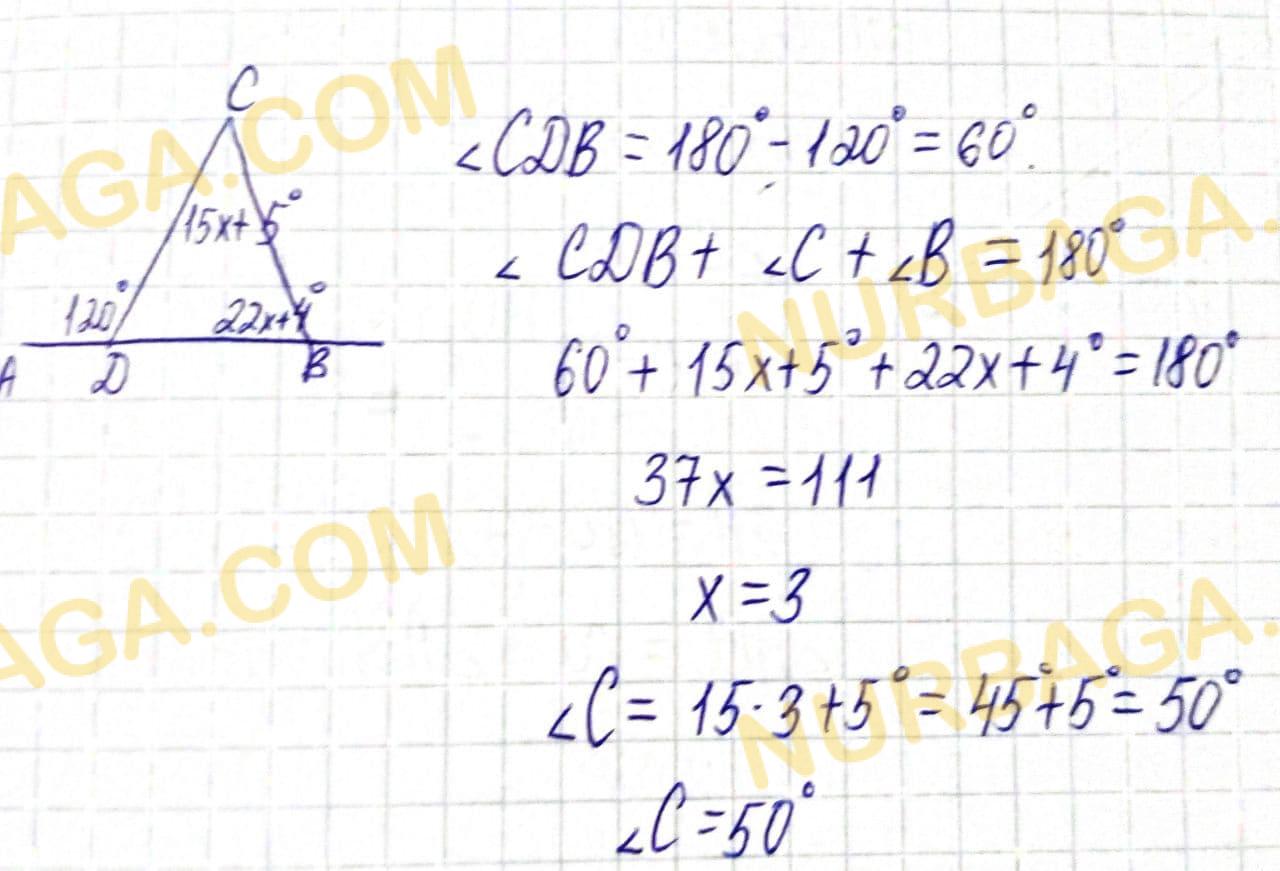 C
15x+5°
120°
22x+4°
A D B
<CDB = 180° - 120° = 60°
< CDB + <C + <B = 180°
60° + 15x+5° + 22x+4° = 180°
37x = 111
x = 3
<C = 15·3+5° = 45°+5° = 50°
<C = 50°
AGA.COM
NURBAGA.
AGA.COM
NURBAGA.